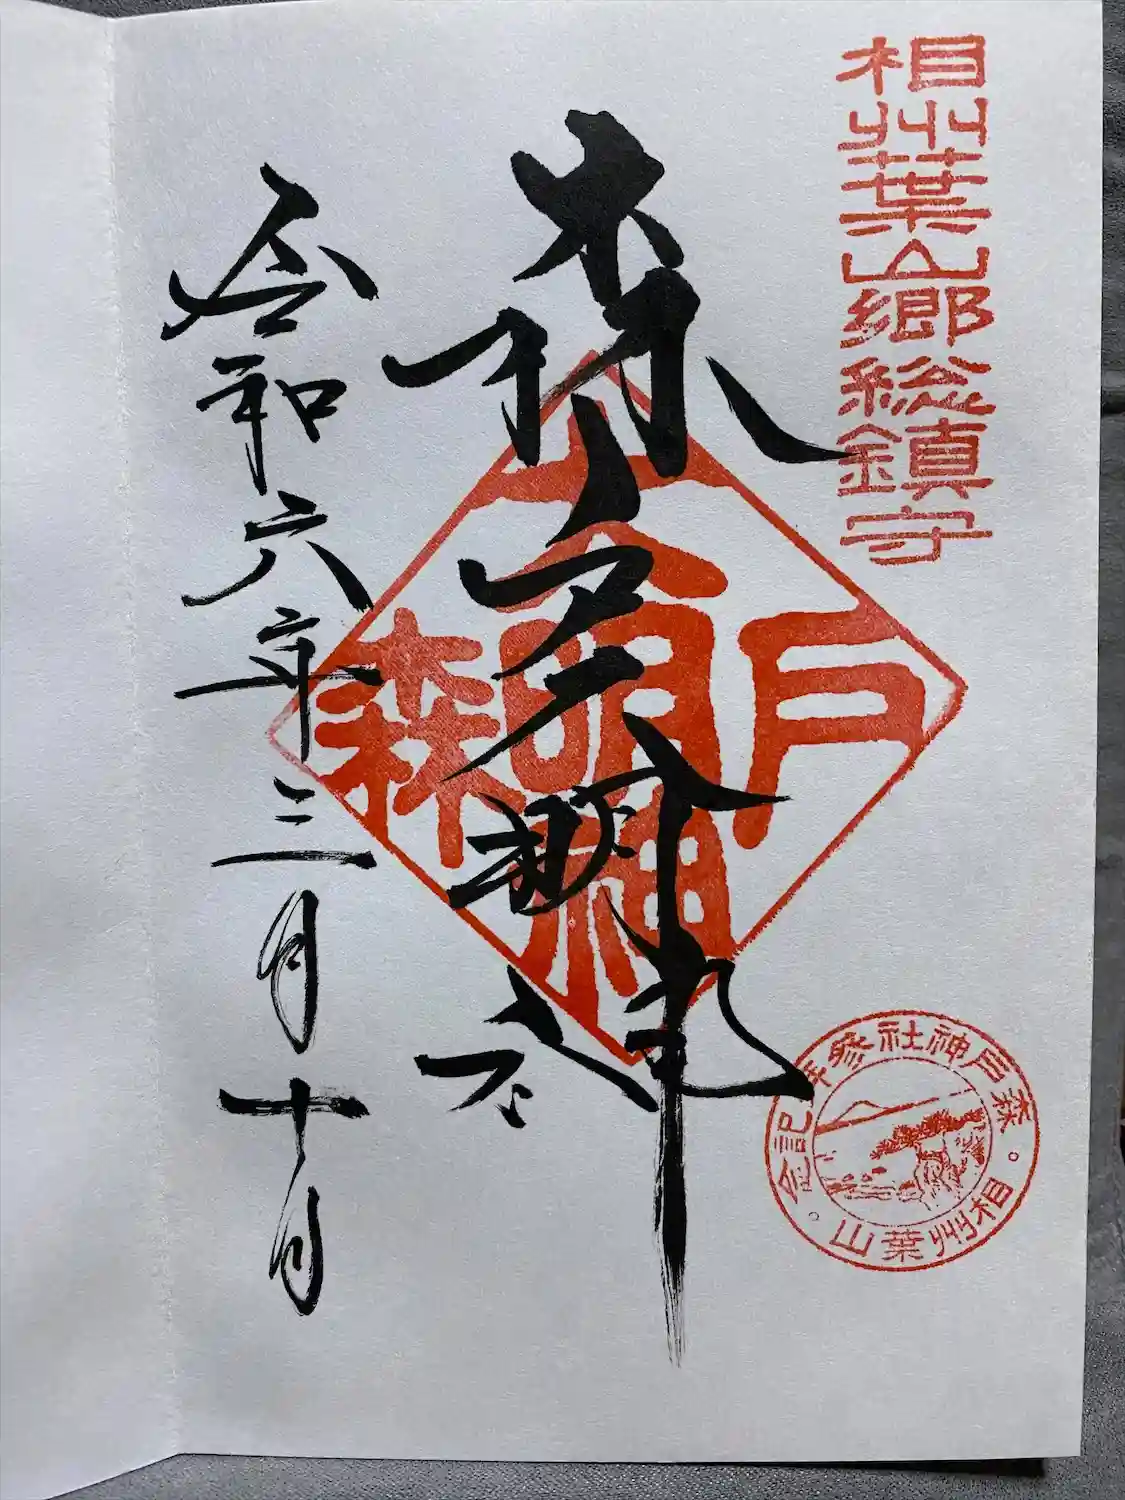 相州葉山郷総鎮守
森戸大明神
森戸大明神
森戸神社参拝記念。相州葉山。
令和六年三月十日